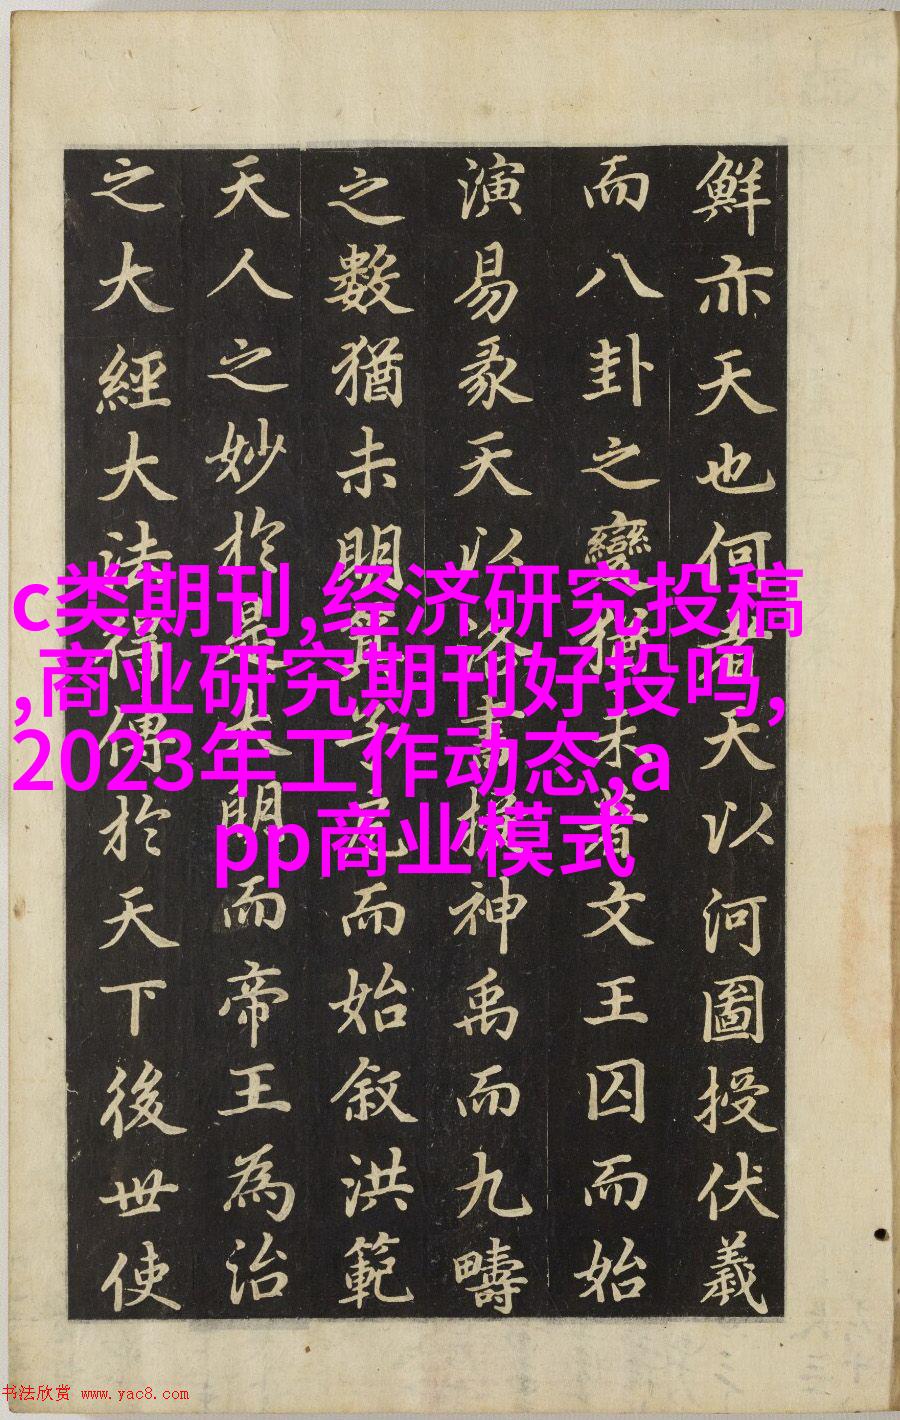 鮮亦天也何者天以河圖授伏羲
而八卦之變猶未著文王囚而始
演易彖天以洛書授神禹而九疇
之數猶未明箕子而始叙洪範
天人之妙於是大明而帝王為治
之大經大法得傳於天下後世使
c类期刊,经济研究投稿
,商业研究期刊好投吗,
2023年工作动态,a
pp商业模式
书法欣赏 www.yac8.com